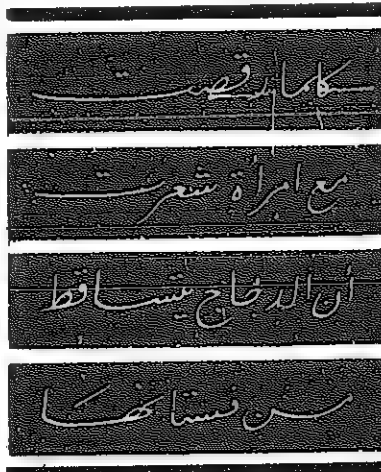 كلما رقصت
مع امرأة شعرت
أن يتساقط
من فستانها